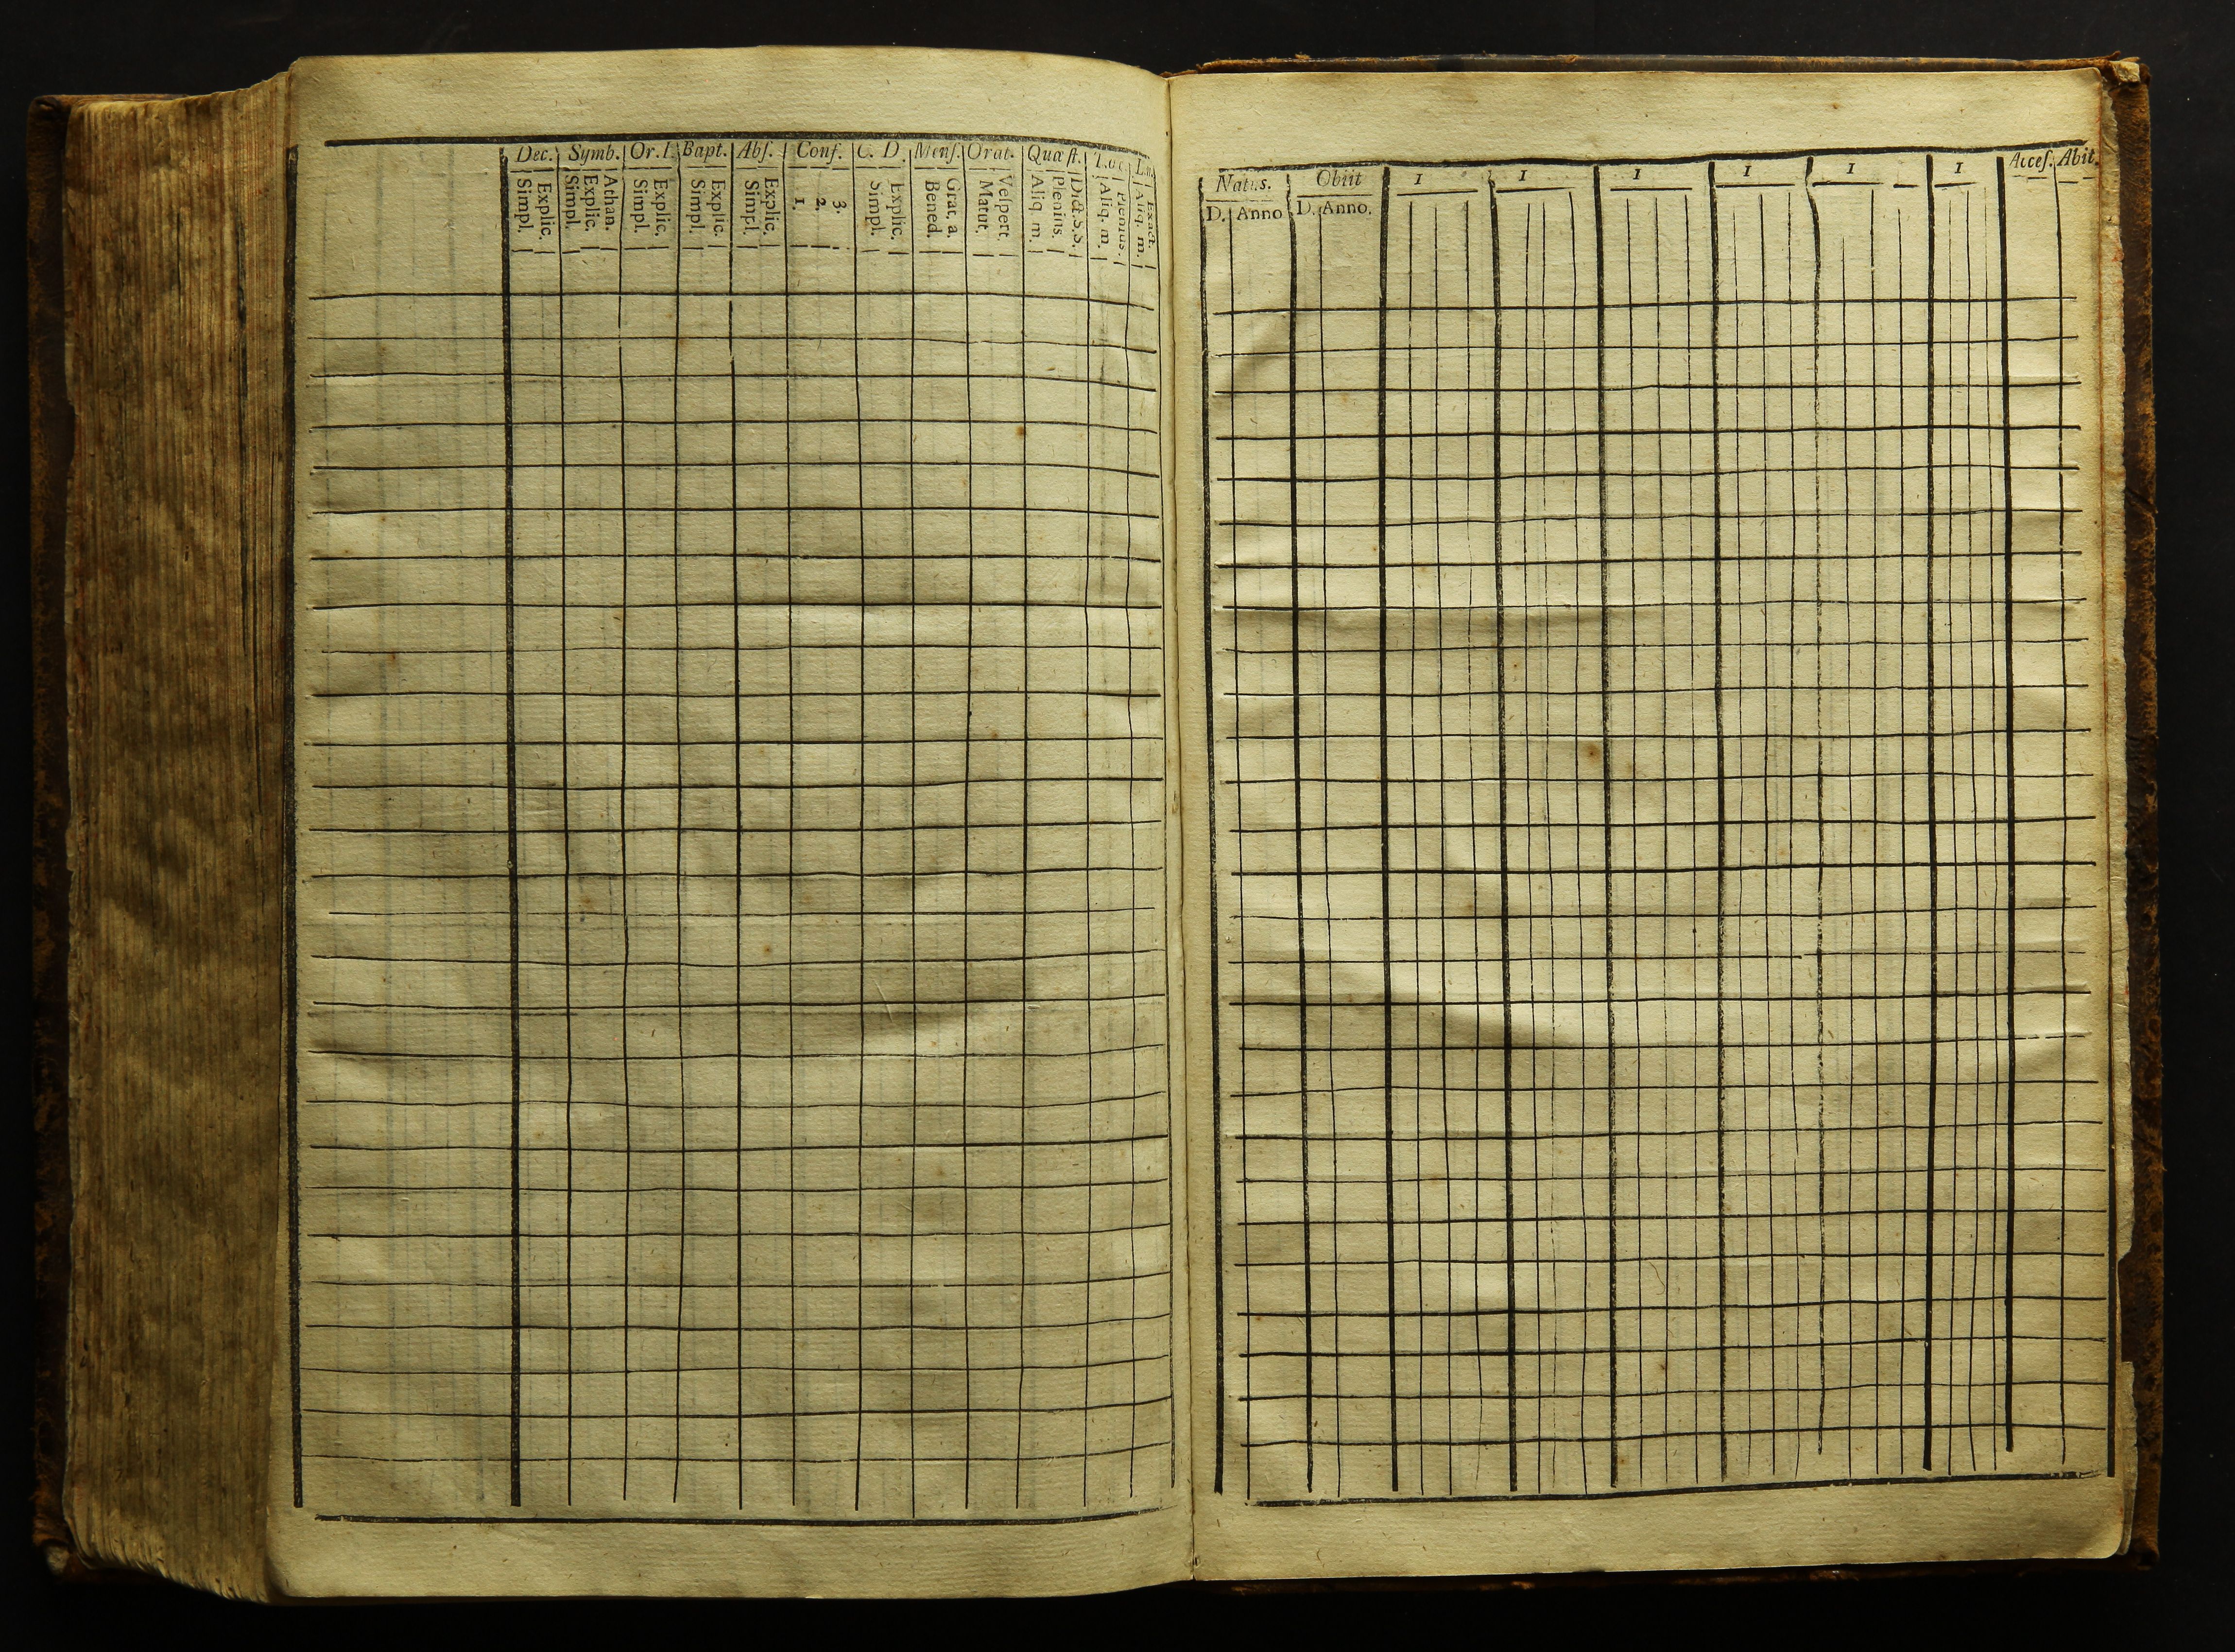 Dec. Symb. Or. Bapt. Abſ. Conf. C. D. Menſ. Orat. Quæſt.
Simpl. Explic. Simpl. Explic. Athan. Simpl. Explic. Simpl. Explic. Simpl. Explic. 1. 2. 3. Simpl. Explic. Bened. Grat. a. Matut. Veſpert. Aliq. m. Plenius. Dict. S. S. Aliq. m. Plenius. Aliq. m. Exact.
Natus. Obiit 1 1 1 1 1 1 Acceſ. Abit.
D. Anno D. Anno.